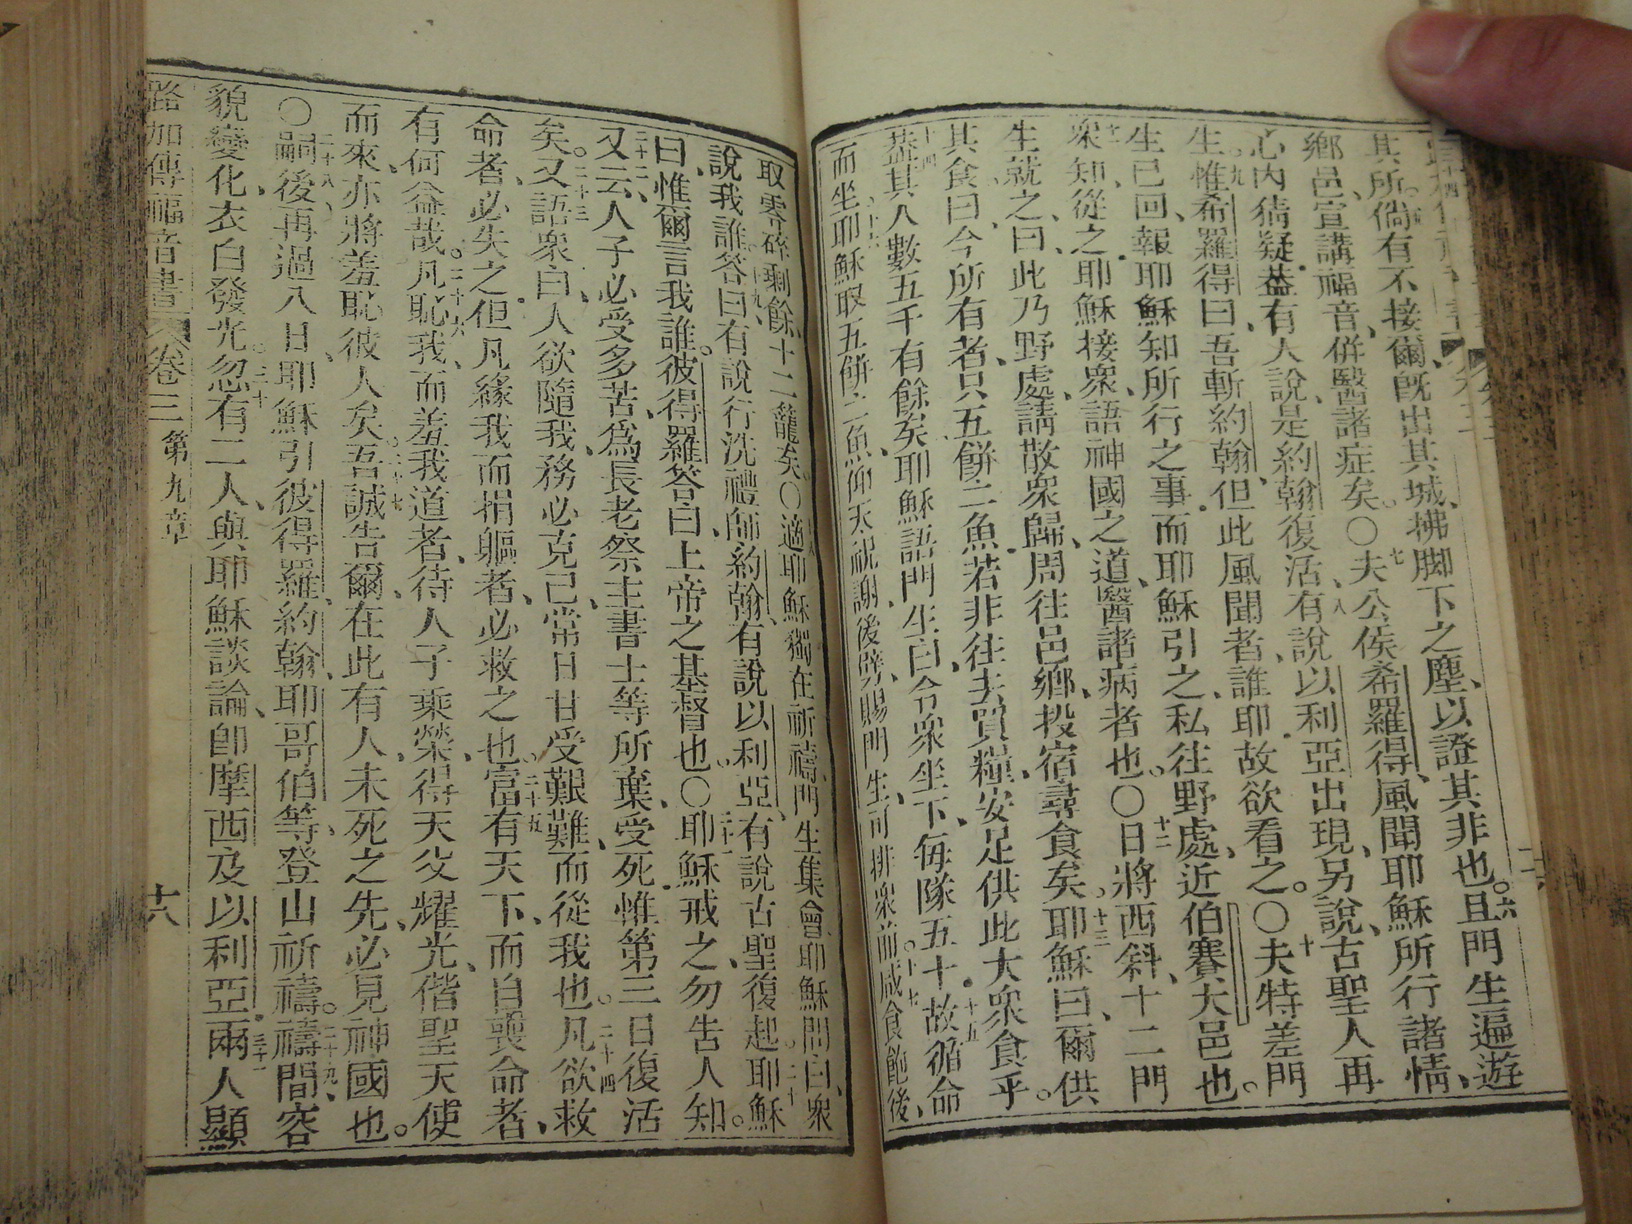 其所倘有不接爾旣出其城、拂脚下之塵、以證其非也。六且門生遍遊
鄉邑、宣講福音、併醫諸症矣。〇七夫公侯希羅得、風聞耶穌所行諸情、
心內猜疑、蓋有人說是約翰復活、八有說以利亞出現、另說古聖人再
生。九惟希羅得曰、吾斬約翰、但此風聞者、誰耶、故欲看之。〇十夫特差門
生已回、報耶穌知所行之事、而耶穌引之、私往野處、近伯賽大邑也。
十一衆知、從之、耶穌接衆、語神國之道、醫諸病者也。〇十二日將西斜、十二門
生就之、曰、此乃野處、請散衆歸、周往邑鄉、投宿尋食矣。十三耶穌曰、爾供
其食、曰、今所有者、只五餅二魚、若非往去買糧、安足供此大衆食乎。
十四蓋其人數五千有餘矣、耶穌語門生曰、令衆坐下、每隊五十、十五故循命
而坐、十六耶穌取五餅二魚、仰天祝謝、後擘、賜門生、可排衆前、十七咸食飽後、
取零碎剩餘、十二籠矣、〇適耶穌獨在祈禱、門生集會、耶穌問曰、衆
說我誰、十九答曰、有說行洗禮師約翰、有說以利亞、有說古聖復起、二十耶穌
曰、惟爾言我誰。彼得羅答曰、上帝之基督也。〇二十一耶穌戒之、勿告人知。
二十二又云、人子必受多苦、爲長老祭主書士等所棄、受死、惟第三日復活
矣。二十三又語衆曰、人欲隨我、務必克己、常日甘受艱難、而從我也。二十四凡欲救
命者、必失之、但凡緣我而捐軀者、必救之也。二十五富有天下、而自喪命者、
有何益哉。二十六凡恥我、而羞我道者、待人子乘榮、得天父耀光、偕聖天使
而來、亦將羞恥彼人矣。二十七吾誠告爾、在此有人、未死之先、必見神國也。
〇二十八嗣後、再過八日、耶穌引彼得羅、約翰、耶哥伯等、登山祈禱。二十九禱間、容
貌變化、衣白發光、三十忽有二人、與耶穌談論、卽摩西及以利亞、三十一兩人顯
路加傳福音書 卷三 第九章 十六